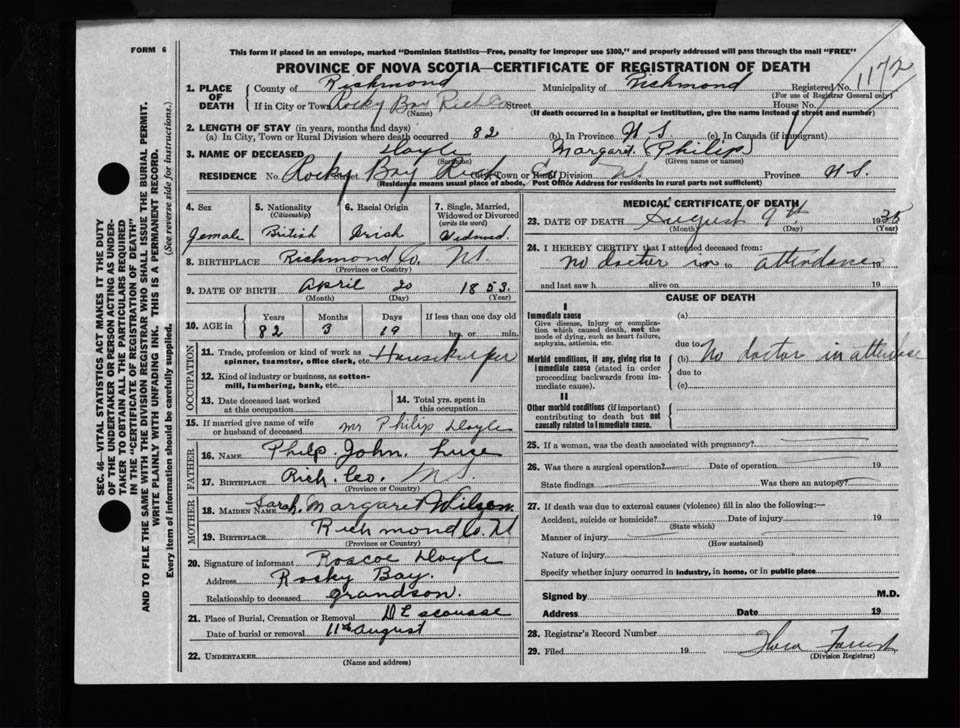 FORM 6
This form if placed in an envelope, marked "Dominion Statistics—Free, penalty for improper use $300," and properly addressed will pass through the mail "FREE"
PROVINCE OF NOVA SCOTIA—CERTIFICATE OF REGISTRATION OF DEATH
1172
1. PLACE OF DEATH
County of Richmond Municipality of Richmond Registered No.
(For use of Registrar General only)
If in City or Town Rocky Bay Rich Co Street House No.
(Name) (If death occurred in a hospital or institution, give the name instead of street and number)
2. LENGTH OF STAY (in years, months and days)
(a) In City, Town or Rural Division where death occurred 82 (b) In Province N S (c) In Canada (if immigrant)
3. NAME OF DECEASED Doyle Margaret (Philip)
(Surname) (Given name or names)
RESIDENCE No. Rocky Bay Rich Co Street City, Town or Rural Division N. Province N S.
(Residence means usual place of abode, Post Office Address for residents in rural parts not sufficient)
4. Sex
female
5. Nationality
(Citizenship)
British
6. Racial Origin
Irish
7. Single, Married, Widowed or Divorced
(write the word)
Widowed
8. BIRTHPLACE Richmond Co. NS.
(Province or Country)
9. DATE OF BIRTH April 20 1853.
(Month) (Day) (Year)
10. AGE in
Years Months Days If less than one day old
82 3 19 hrs. or min.
OCCUPATION
11. Trade, profession or kind of work as spinner, teamster, office clerk, etc. Housekeeper
12. Kind of industry or business, as cotton-mill, lumbering, bank, etc.
13. Date deceased last worked at this occupation
14. Total yrs. spent in this occupation
15. If married give name of wife or husband of deceased Mr Philip Doyle
FATHER
16. NAME Philp. John.
17. BIRTHPLACE Rich. Co. N S.
(Province or Country)
MOTHER
18. MAIDEN NAME Sarah. Margaret Wilson.
19. BIRTHPLACE Richmond Co. N
(Province or Country)
20. Signature of informant Roscoe Doyle
Address Rocky Bay.
Relationship to deceased grandson.
21. Place of Burial, Cremation or Removal D'Escousse
Date of burial or removal 11th August
22. UNDERTAKER
(Name and address)
MEDICAL CERTIFICATE OF DEATH
23. DATE OF DEATH August 9th 1935
(Month) (Day) (Year)
24. I HEREBY CERTIFY that I attended deceased from:
no doctor in to attendance 19
and last saw h alive on 19
CAUSE OF DEATH
I
Immediate cause
Give disease, injury or complication which caused death, not the mode of dying, such as heart failure, asphyxia, asthenia, etc.
(a)
due to
Morbid conditions, if any, giving rise to immediate cause (stated in order proceeding backwards from immediate cause).
(b) No doctor in
due to
(c)
II
Other morbid conditions (if important) contributing to death but not causally related to immediate cause.
25. If a woman, was the death associated with pregnancy?
26. Was there a surgical operation? Date of operation 19
State findings Was there an autopsy?
27. If death was due to external causes (violence) fill in also the following:—
Accident, suicide or homicide? Date of injury 19
(State which)
Manner of injury
(How sustained)
Nature of injury
Specify whether injury occurred in industry, in home, or in public place
Signed by M.D.
Address Date 19
28. Registrar's Record Number
29. Filed 19
(Division Registrar)
SEC. 46—VITAL STATISTICS ACT MAKES IT THE DUTY
OF THE UNDERTAKER OR PERSON ACTING AS UNDER-
TAKER TO OBTAIN ALL THE PARTICULARS REQUIRED
IN THE "CERTIFICATE OF REGISTRATION OF DEATH"
AND TO FILE THE SAME WITH THE DIVISION REGISTRAR WHO SHALL ISSUE THE BURIAL PERMIT.
WRITE PLAINLY WITH UNFADING INK. THIS IS A PERMANENT RECORD.
Every item of information should be carefully supplied. (See reverse side for instructions.)